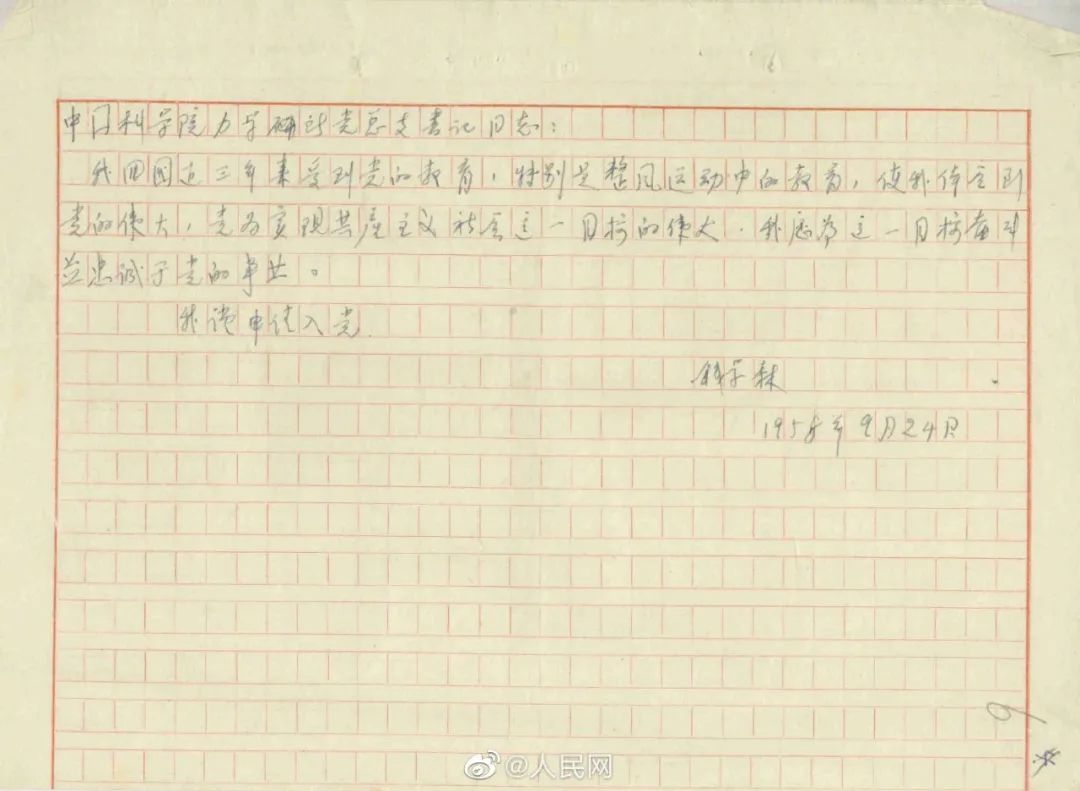 中国科学院力学研究所党总支书记同志：
我回國近三年来受到党的教育，特别是整风运动中的教育，使我体会到
党的伟大，党为实现共产主义社会这一目标的伟大．我愿为这一目标奋斗
并忠诚于党的事业。
我谨申请入党．
钱学森
1958年9月24日
9
@人民网